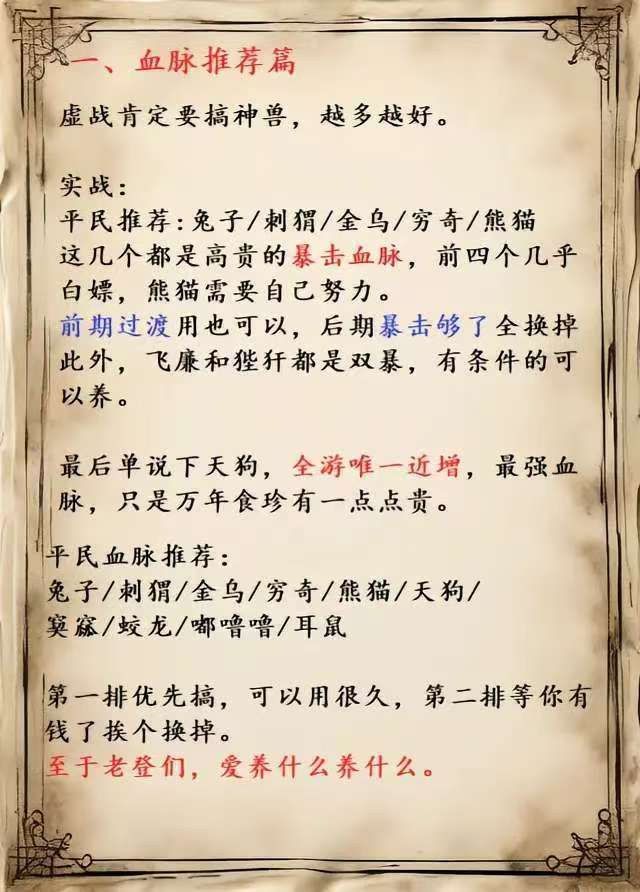 一、血脉推荐篇
虚战肯定要搞神兽，越多越好。
实战：
平民推荐：兔子/刺猬/金乌/穷奇/熊猫
这几个都是高贵的暴击血脉，前四个几乎
白嫖，熊猫需要自己努力。
前期过渡用也可以，后期暴击够了全换掉
此外，飞廉和狴犴都是双暴，有条件的可
以养。
最后单说下天狗，全游唯一近增，最强血
脉，只是万年食珍有一点点贵。
平民血脉推荐：
兔子/刺猬/金乌/穷奇/熊猫/天狗/
窫窳/蛟龙/嘟噜噜/耳鼠
第一排优先搞，可以用很久，第二排等你有
钱了挨个换掉。
至于老登们，爱养什么养什么。